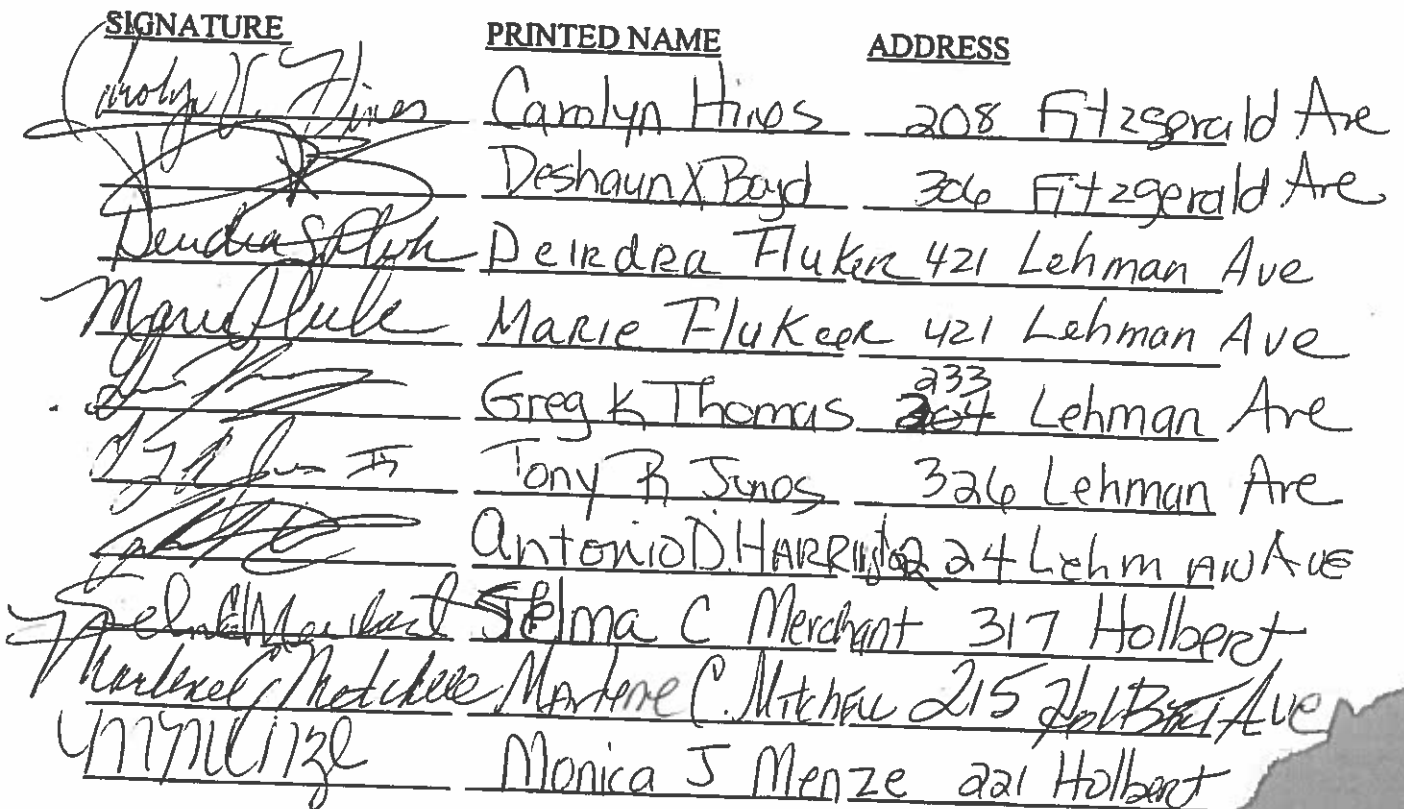 SIGNATURE PRINTED NAME ADDRESS
Carolyn V. Hines Carolyn Hines 208 Fitzgerald Ave
Deshaun X Boyd 306 Fitzgerald Ave
Deirdra Fluker 421 Lehman Ave
Marie Flukeer 421 Lehman Ave
Greg K Thomas 233 Lehman Ave
Tony R Jones 326 Lehman Ave
Antonio D. Harrington 224 Lehman Ave
Selma C Merchant Selma C Merchant 317 Holbert
Marlene C Mitchell Marlene C. Mitchell 215 Holbert Ave
Monica J Menze 221 Holbert